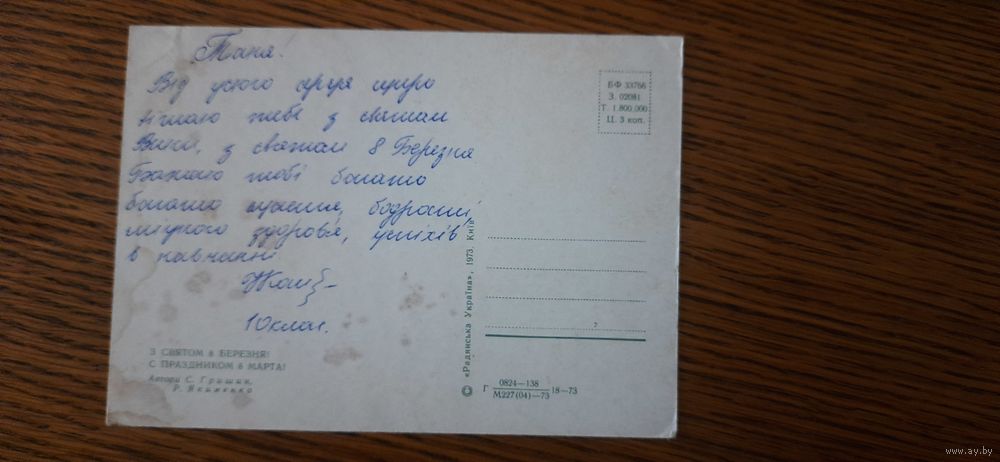 Таня!
Від усього серця щиро
вітаю тебе з святом
Весни, з святом 8 Березня
Бажаю тобі багато
багато щастя, бодрості,
міцного здоров'я, успіхів
в навчанні
10 клас.
З СВЯТОМ 8 БЕРЕЗНЯ!
С ПРАЗДНИКОМ 8 МАРТА!
Автори С. Гришин,
Р. Якименко
БФ 33766
З. 02081
Т. 1.800.000
Ц. 3 коп.
«Радянська Україна», 1973. Київ
Г 0824—138
М227(04)—73 18—73
www.ay.by